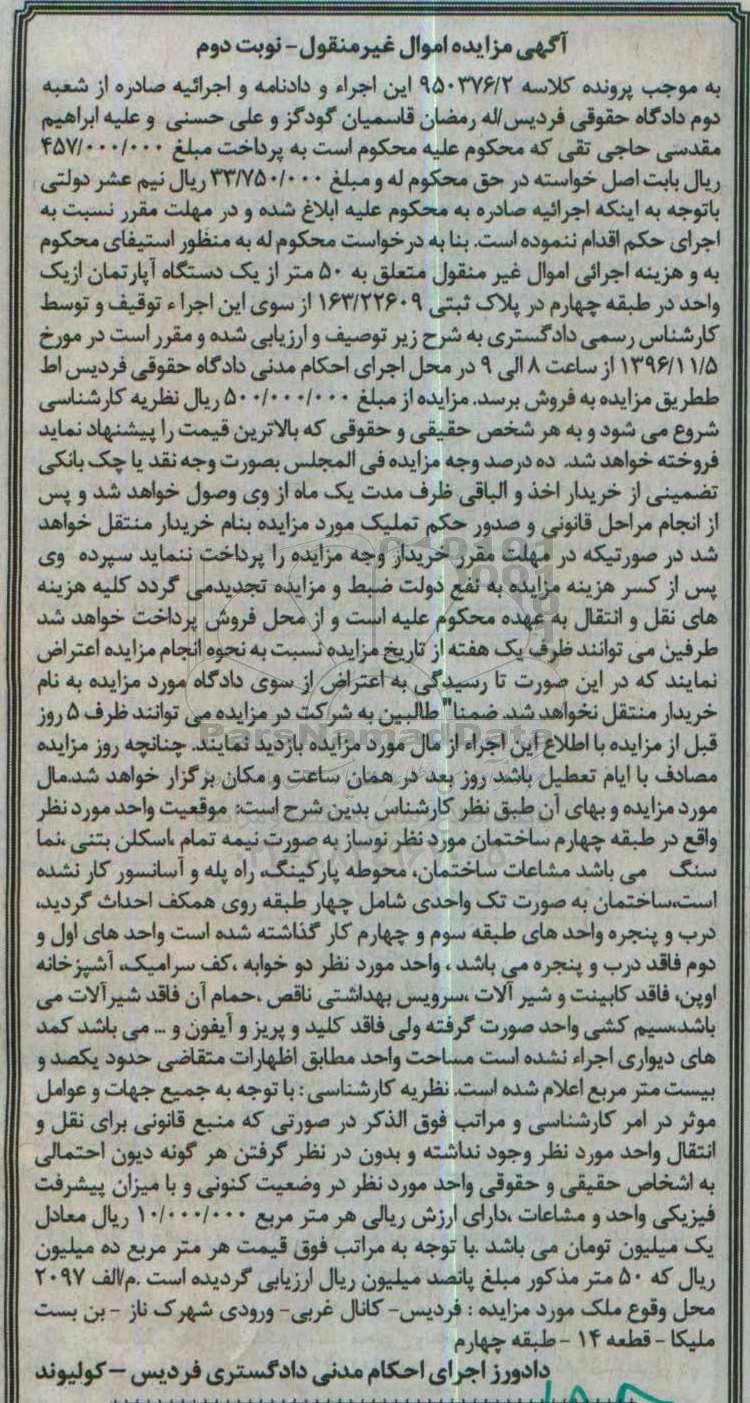 آگهی مزایده اموال غیرمنقول- نوبت دوم
به موجب پرونده کلاسه ۹۵۰۳۷۶/۲ این اجراء و دادنامه و اجرائیه صادره از شعبه
دوم دادگاه حقوقی فردیس/له رمضان قاسمیان گودگز و علی حسنی و علیه ابراهیم
مقدسی حاجی تقی که محکوم علیه محکوم است به پرداخت مبلغ ۴۵۷/۰۰۰/۰۰۰
ریال بابت اصل خواسته در حق محکوم له و مبلغ ۳۳/۷۵۰/۰۰۰ ریال نیم عشر دولتی
باتوجه به اینکه اجرائیه صادره به محکوم علیه ابلاغ شده و در مهلت مقرر نسبت به
اجرای حکم اقدام ننموده است. بنا به درخواست محکوم له به منظور استیفای محکوم
به و هزینه اجرائی اموال غیر منقول متعلق به ۵۰ متر از یک دستگاه آپارتمان ازیک
واحد در طبقه چهارم در پلاک ثبتی ۱۶۳/۲۲۶۰۹ از سوی این اجراء توقیف و توسط
کارشناس رسمی دادگستری به شرح زیر توصیف و ارزیابی شده و مقرر است در مورخ
۱۳۹۶/۱۱/۵ از ساعت ۸ الی ۹ در محل اجرای احکام مدنی دادگاه حقوقی فردیس اط
ططریق مزایده به فروش برسد. مزایده از مبلغ ۵۰۰/۰۰۰/۰۰۰ ریال نظریه کارشناسی
شروع می شود و به هر شخص حقیقی و حقوقی که بالاترین قیمت را پیشنهاد نماید
فروخته خواهد شد. ده درصد وجه مزایده فی المجلس بصورت وجه نقد یا چک بانکی
تضمینی از خریدار اخذ و الباقی ظرف مدت یک ماه از وی وصول خواهد شد و پس
از انجام مراحل قانونی و صدور حکم تملیک مورد مزایده بنام خریدار منتقل خواهد
شد در صورتیکه در مهلت مقرر خریدار وجه مزایده را پرداخت ننماید سپرده وی
پس از کسر هزینه مزایده به نفع دولت ضبط و مزایده تجدیدمی گردد کلیه هزینه
های نقل و انتقال به عهده محکوم علیه است و از محل فروش پرداخت خواهد شد
طرفین می توانند ظرف یک هفته از تاریخ مزایده نسبت به نحوه انجام مزایده اعتراض
نمایند که در این صورت تا رسیدگی به اعتراض از سوی دادگاه مورد مزایده به نام
خریدار منتقل نخواهد شد. ضمنا" طالبین به شرکت در مزایده می توانند ظرف ۵ روز
قبل از مزایده با اطلاع این اجراء از مال مورد مزایده بازدید نمایند. چنانچه روز مزایده
مصادف با ایام تعطیل باشد روز بعد در همان ساعت و مکان برگزار خواهد شد.مال
مورد مزایده و بهای آن طبق نظر کارشناس بدین شرح است: موقعیت واحد مورد نظر
واقع در طبقه چهارم ساختمان مورد نظر نوساز به صورت نیمه تمام ،اسکلن بتنی ،نما
سنگ می باشد مشاعات ساختمان، محوطه پارکینگ، راه پله و آسانسور کار نشده
است،ساختمان به صورت تک واحدی شامل چهار طبقه روی همکف احداث گردید،
درب و پنجره واحد های طبقه سوم و چهارم کار گذاشته شده است واحد های اول و
دوم فاقد درب و پنجره می باشد ، واحد مورد نظر دو خوابه ،کف سرامیک، آشپزخانه
اوپن، فاقد کابینت و شیر آلات ،سرویس بهداشتی ناقص ،حمام آن فاقد شیرآلات می
باشد،سیم کشی واحد صورت گرفته ولی فاقد کلید و پریز و آیفون و ... می باشد کمد
های دیواری اجراء نشده است مساحت واحد مطابق اظهارات متقاضی حدود یکصد و
بیست متر مربع اعلام شده است. نظریه کارشناسی : با توجه به جمیع جهات و عوامل
موثر در امر کارشناسی و مراتب فوق الذکر در صورتی که منبع قانونی برای نقل و
انتقال واحد مورد نظر وجود نداشته و بدون در نظر گرفتن هر گونه دیون احتمالی
به اشخاص حقیقی و حقوقی واحد مورد نظر در وضعیت کنونی و با میزان پیشرفت
فیزیکی واحد و مشاعات ،دارای ارزش ریالی هر متر مربع ۱۰/۰۰۰/۰۰۰ ریال معادل
یک میلیون تومان می باشد .با توجه به مراتب فوق قیمت هر متر مربع ده میلیون
ریال که ۵۰ متر مذکور مبلغ پانصد میلیون ریال ارزیابی گردیده است .م/الف ۲۰۹۷
محل وقوع ملک مورد مزایده : فردیس- کانال غربی- ورودی شهرک ناز - بن بست
ملیکا - قطعه ۱۴ - طبقه چهارم
دادورز اجرای احکام مدنی دادگستری فردیس – کولیوند
ParsNamadData